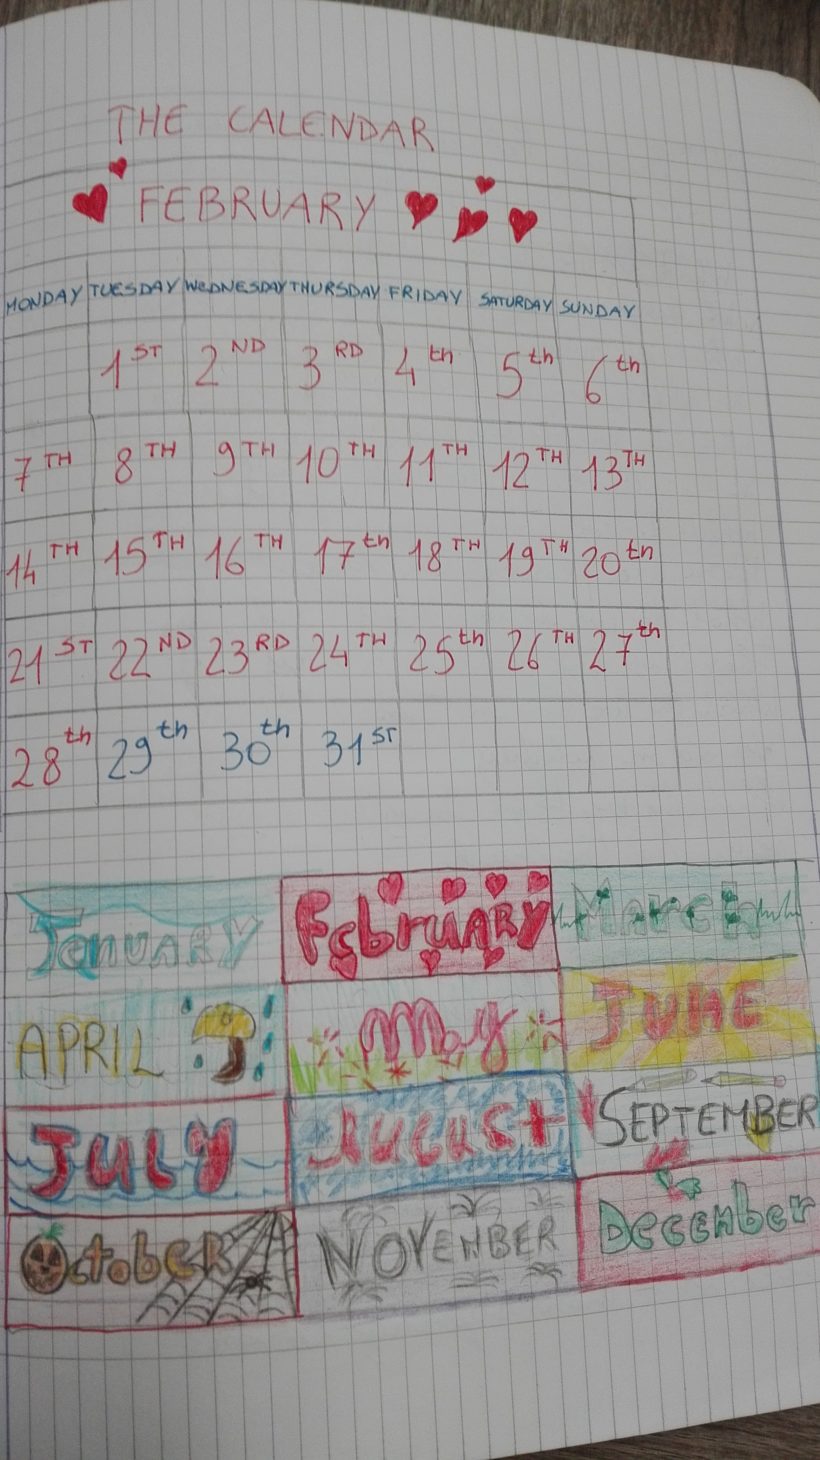 THE CALENDAR
FEBRUARY
MONDAY TUESDAY WEDNESDAY THURSDAY FRIDAY SATURDAY SUNDAY
1ST 2ND 3RD 4th 5th 6th
7TH 8TH 9TH 10TH 11TH 12TH 13TH
14TH 15TH 16TH 17th 18TH 19TH 20th
21ST 22ND 23RD 24TH 25th 26TH 27th
28th 29th 30th 31ST
JANUARY FEbruARY March
APRIL May JUNE
JULY AUGUST SEPTEMBER
October NOVEMBER DECEMber